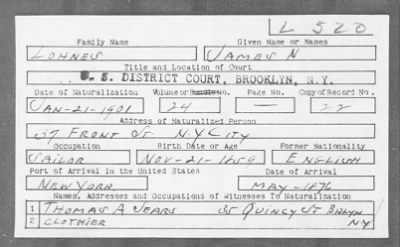 L 520
Family Name Given Name or Names
LOHNES JAMES N
Title and Location of Court
U. S. DISTRICT COURT, BROOKLYN, N.Y.
Date of Naturalization Volume or Bundle No. Page No. Copy of Record No.
JAN-21-1901 24 — 22
Address of Naturalized Person
37 FRONT ST N.Y. CITY
Occupation Birth Date or Age Former Nationality
SAILOR NOV-21-1859 ENGLISH
Port of Arrival in the United States Date of Arrival
NEW YORK MAY-1876
Names, Addresses and Occupations of Witnesses To Naturalization
1 THOMAS A SEARS 35 QUINCY ST BKLYN
2 CLOTHIER NY